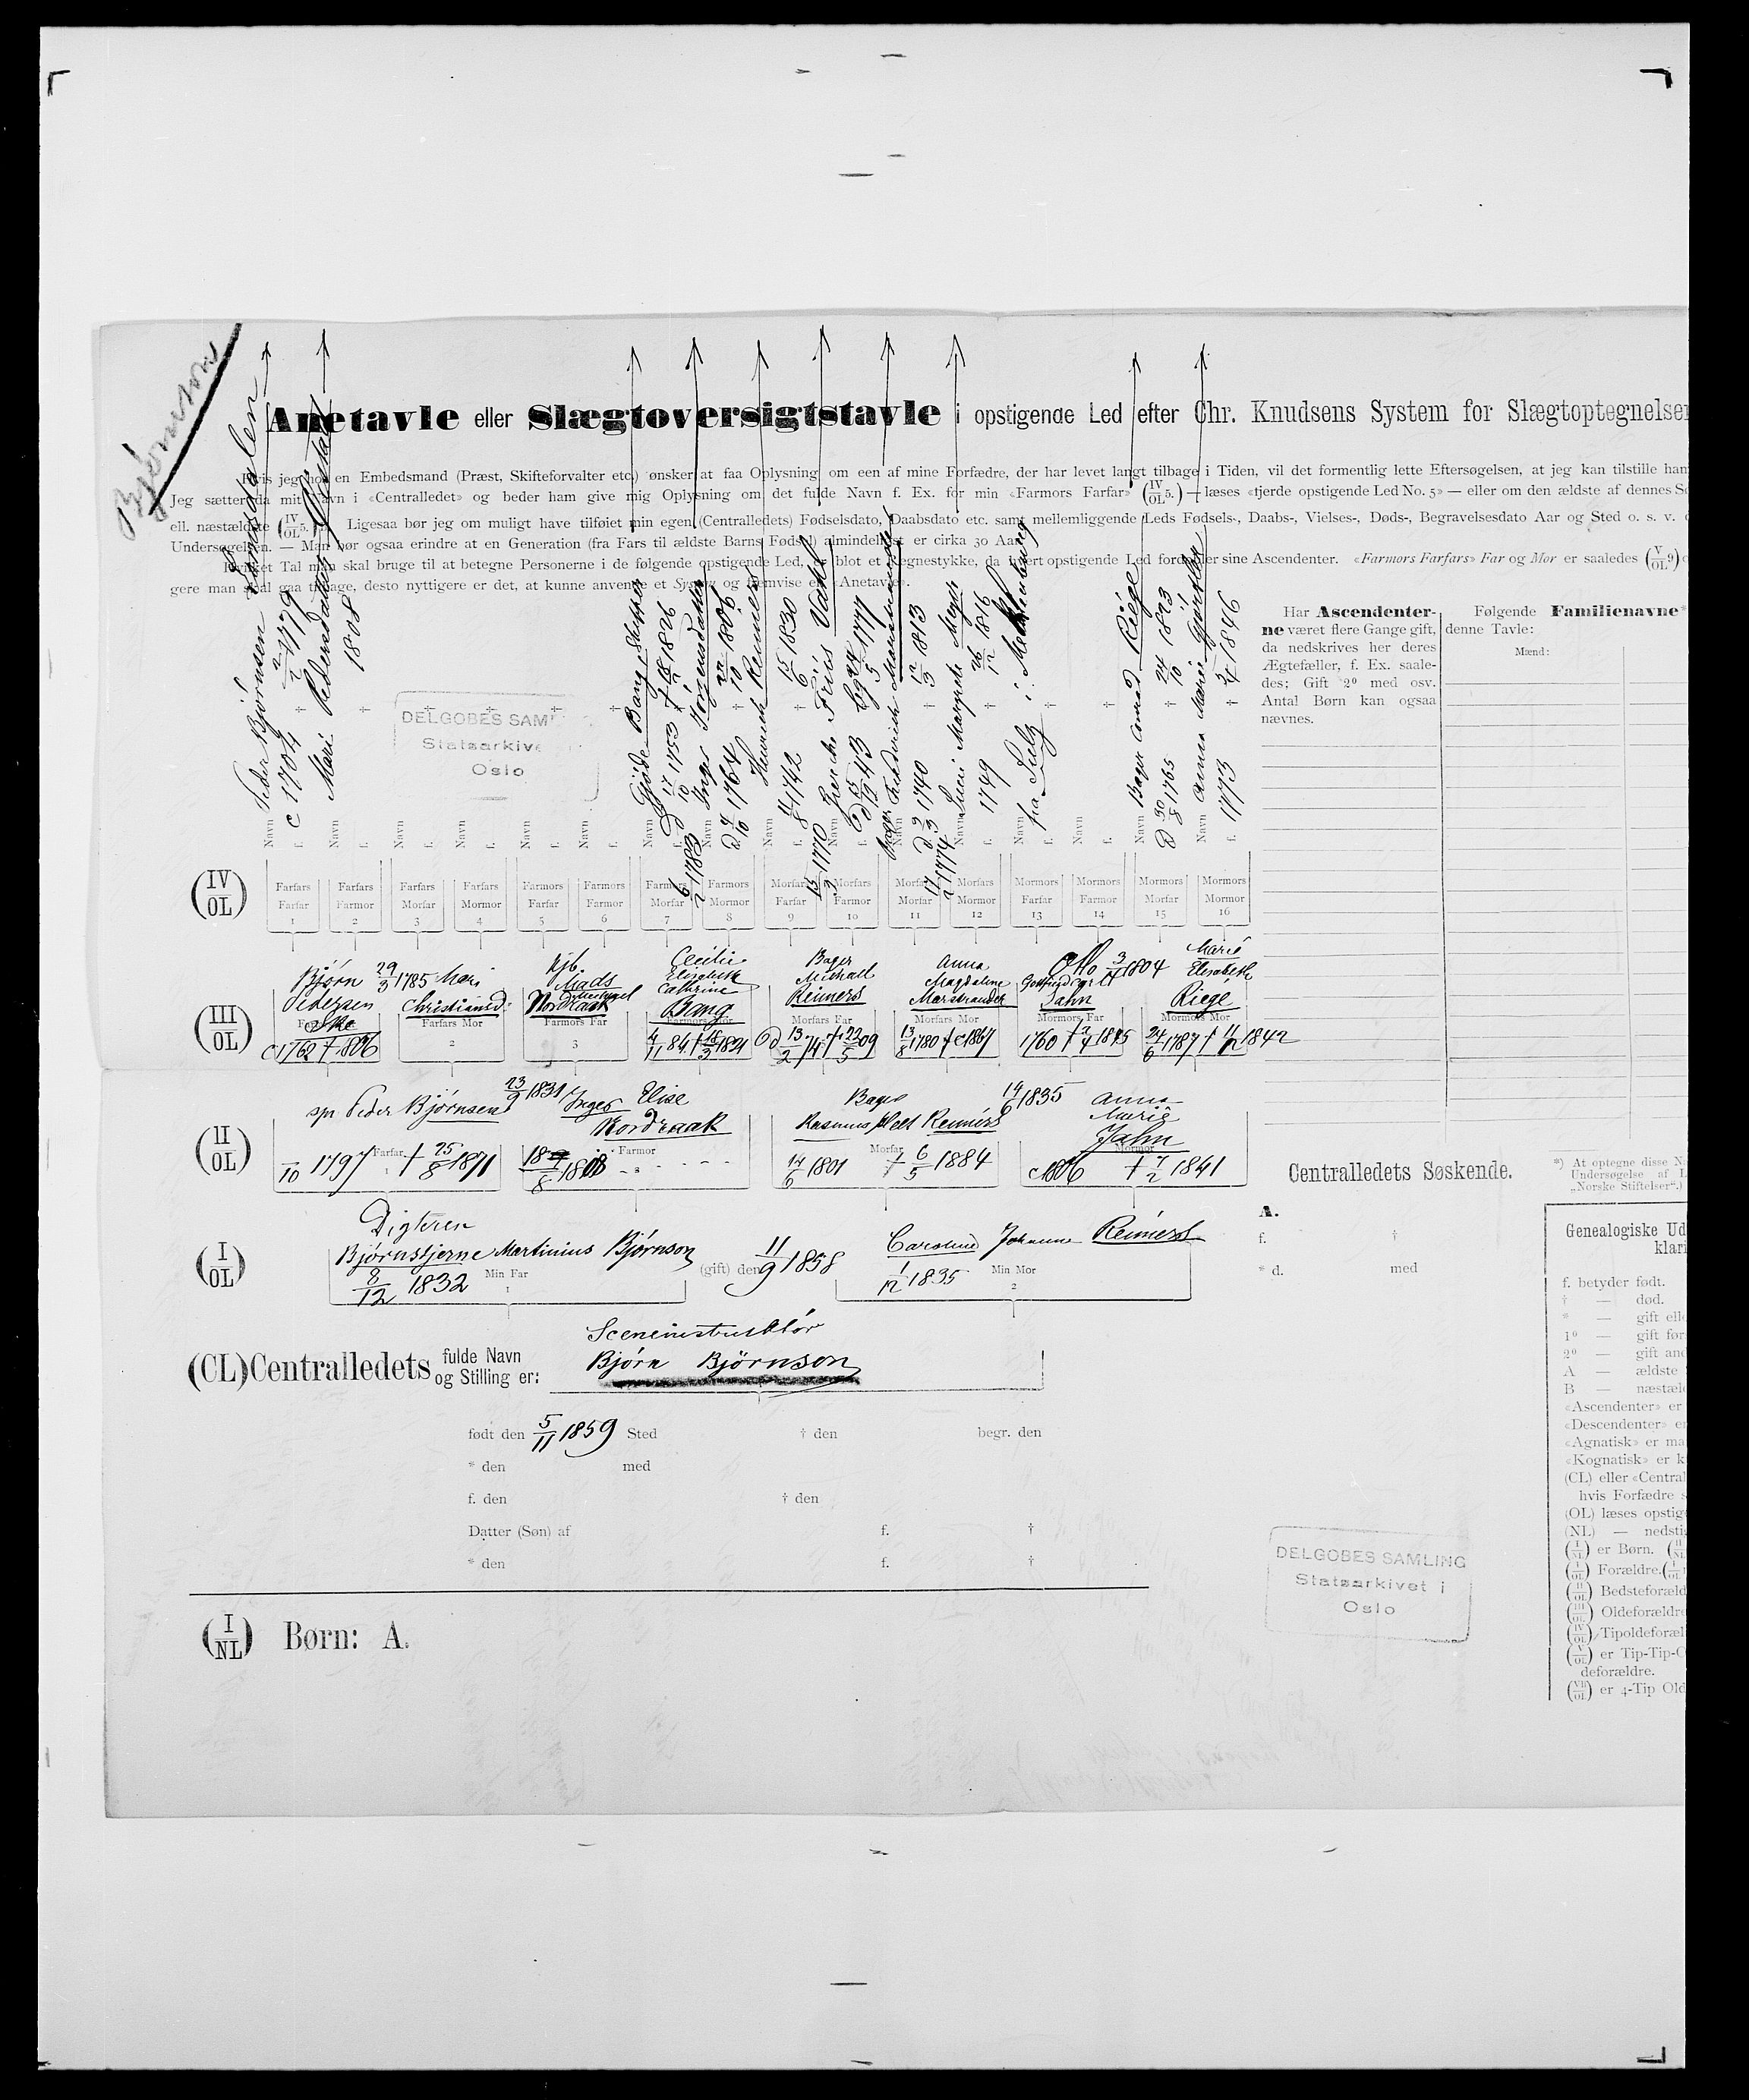 Bjørnson
Anetavle eller Slægtoversigtstavle i opstigende Led efter Chr. Knudsens System for Slægtoptegnelser
Hvis jeg hos en Embedsmand (Præst, Skifteforvalter etc.) ønsker at faa Oplysning om een af mine Forfædre, der har levet langt tilbage i Tiden, vil det formentlig lette Eftersøgelsen, at jeg kan tilstille ham
Jeg sætter da mit Navn i «Centralledet» og beder ham give mig Oplysning om det fulde Navn f. Ex. for min «Farmors Farfar» (IV/OL 5.) — læses «fjerde opstigende Led No. 5» — eller om den ældste af dennes
ell. næstældste (IV/OL 5.) Ligesaa bør jeg om muligt have tilføiet min egen (Centralledets) Fødselsdato, Daabsdato etc. samt mellemliggende Leds Fødsels-, Daabs-, Vielses-, Døds-, Begravelsesdato Aar og Sted o. s. v.
Undersøgelsen. — Man bør ogsaa erindre at en Generation (fra Fars til ældste Barns Fødsel) almindeligst er cirka 30 Aar.
Hvilket Tal man skal bruge til at betegne Personerne i de følgende opstigende Led, er blot et Regnestykke, da hvert opstigende Led fordobler sine Ascendenter. «Farmors Farfars» Far og Mor er saaledes (V/OL 9)
gere man skal gaa tilbage, desto nyttigere er det, at kunne anvende et System og henvise en «Anetavle».
Har Ascendenter-
ne været flere Gange gift,
da nedskrives her deres
Ægtefæller, f. Ex. saale-
des; Gift 2º med osv.
Antal Børn kan ogsaa
nævnes.
Følgende Familienavne*
denne Tavle:
Mænd:
Peder Bjørnsen
c 1704 † 2/2 1779
Mari Pedersdatter
† 1808
Gjøde Bang Skipper
17/10 1753 † 1826
Inger Jørgensdatter
d 4/10 1764 † 22/10 1806
6/2 1783
Henrich Reimers
f. 11/8 1742 † 15/6 1830
Friis Vahl
1743 5 1777
1770
Bager Fredrich Marstrander
d 2/3 1740 † 12/3 1813
17/2 1774
Margrete Meyer
f. 1749 † 26/12 1816
fra Sulz i Mecklenburg
Bager Riege
d 30/8 1765 † 24/10 1823
Anna Marie
f. 1773 † 5/4 1846
DELGOBES SAML
Statsarkive
Oslo
(IV/OL)
Farfars Farfar 1
Farfars Farmor 2
Farfars Morfar 3
Farfars Mormor 4
Farmors Farfar 5
Farmors Farmor 6
Farmors Morfar 7
Farmors Mormor 8
Morfars Farfar 9
Morfars Farmor 10
Morfars Morfar 11
Morfars Mormor 12
Mormors Farfar 13
Mormors Farmor 14
Mormors Morfar 15
Mormors Mormor 16
(III/OL)
Bjørn Pedersen Ske
c 1762 † 1806
29/3 1785
Mari Christiansd:
Farfars Mor
2
Kjb. Mads Nordraak
Farmors Far
3
Cecilie Elisabeth Cathrine Bang
Farmors Mor
4/11 84 † 18/3 1821
Bager Michael Reimers
Morfars Far
d 13/2 74 † 22/5 09
Anna Magdalene Marstrander
Morfars Mor
13/8 1780 † c 1867
Otto Gottfried Carl Jahn
Mormors Far
1760 † 2/4 1845
3/4 1804
Marie Elisabeth Riege
Mormors Mor
24/6 1787 † 11/12 1842
(II/OL)
spr. Peder Bjørnsen
Farfar
1
/10 1797 † 25/8 1871
23/9 1831
Inger Elise Nordraak
Farmor
2
Bager
Rasmus Helt Reimers
Morfar
14/6 1801 † 6/5 1884
14/6 1835
Anna Marie Jahn
Mormor
c 1806 † 7/2 1841
(I/OL)
Digteren
Bjørnstjerne Martinius Bjørnson
8/12 1832
Min Far
1
(gift) den 11/9 1858
Caroline Johanne Reimers
1/12 1835
Min Mor
2
(CL) Centralledets fulde Navn og Stilling er:
Sceneinstruktør
Bjørn Bjørnson
født den 5/11 1859 Sted † den begr. den
* den med
f. den † den
Datter (Søn) af f. †
* den f. †
(I/NL) Børn: A.
Centralledets Søskende.
A.
f. †
* d. med
DELGOBES SAMLING
Statsarkivet i
Oslo
*) At optegne disse
Undersøgelse af
„Norske Stiftelser“.)
Genealogiske Ud
klari
f. betyder født.
† — død.
* — gift
1º — gift
2º — gift
A — ældste
B —
«Ascendenter» er
«Descendenter»
«Agnatisk» er
«Kognatisk» er
(CL) eller «Central
hvis Forfædre
(OL) læses opstig
(NL) — nedsti
(I/NL) er Børn.
(I/OL) Forældre.
(II/OL) Bedsteforæld
(III/OL) Oldeforældre
(IV/OL) Tipoldeforæl
(V/OL) er Tip-Tip-O
deforældre.
(VII/OL) er 4-Tip Old